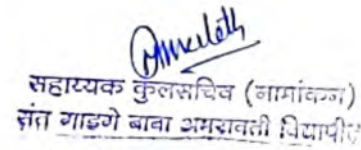 सहाय्यक कुलसचिव (नामांकन)
संत गाडगे बाबा अमरावती विद्यापीठ